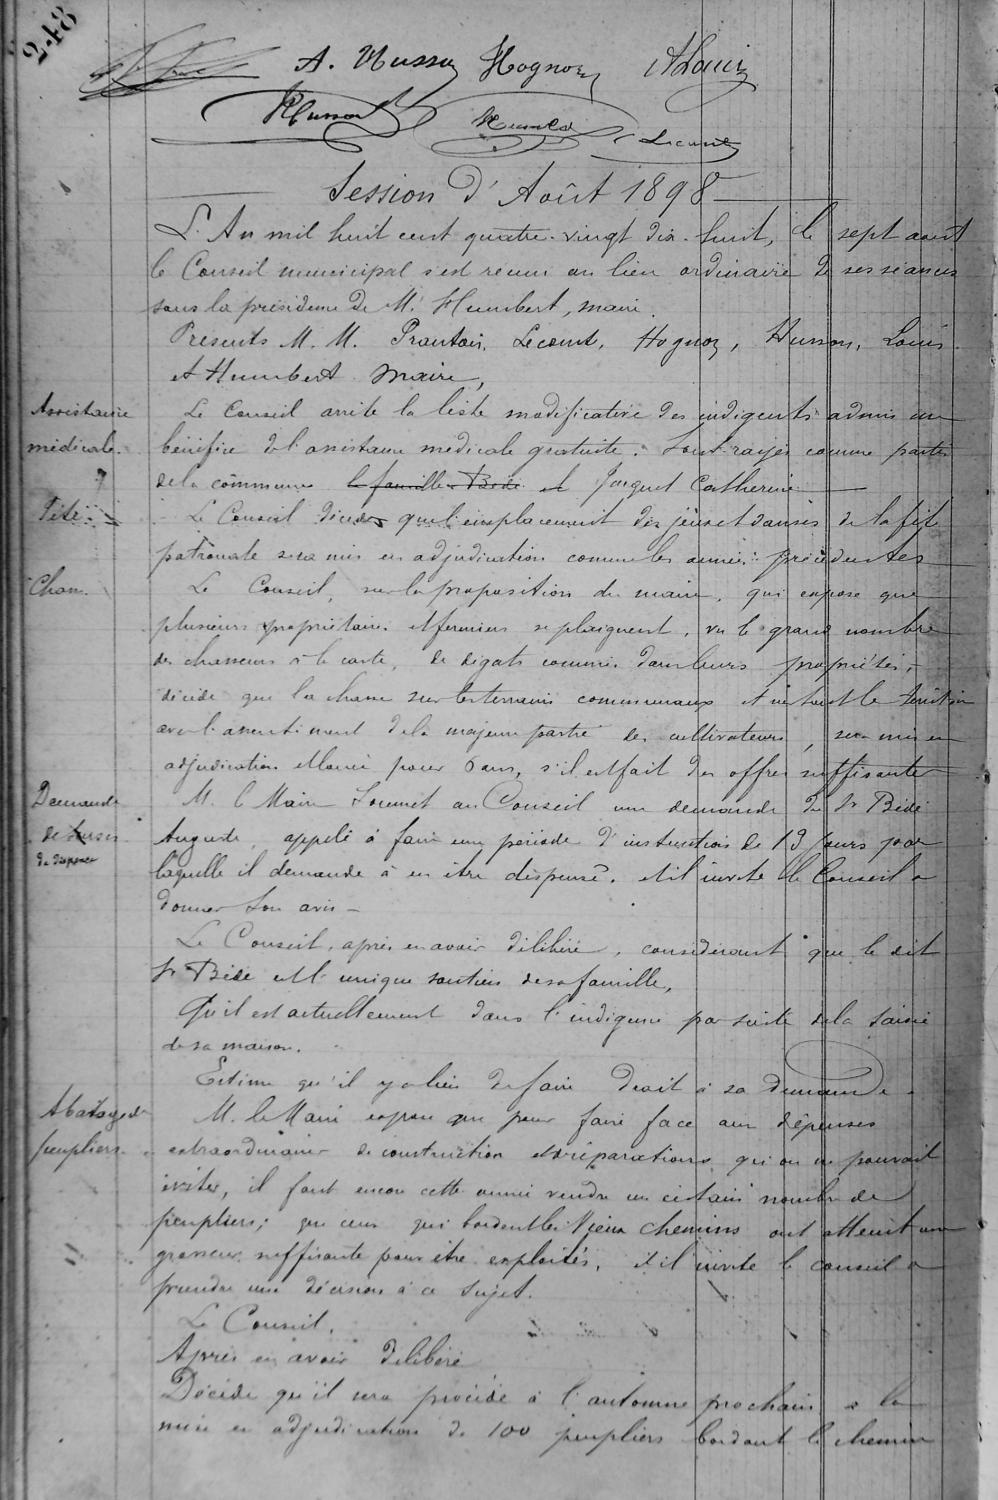 248
A. Husson Hognon ALouis
Husson Humbert Lecomte
Session d'Août 1898
L'An mil huit cent quatre-vingt dix-huit, le sept août
le Conseil municipal s'est réuni au lieu ordinaire de ses séances
sous la présidence de M. Humbert, maire.
Présents M. M. Prautois, Lecomte, Hognon, Husson, Louis
et Humbert Maire,
Assistance
médicale.
Le Conseil arrête la liste modificative des indigents admis au
bénéfice de l'assistance médicale gratuite. Sont rayés comme partis
de la commune la famille Bédé et Jacquot Catherine
Fête
Le Conseil décide que l'emplacement des jeux et danses de la fête
patronale sera mis en adjudication comme les années précédentes
Chasse
Le Conseil, sur la proposition du maire, qui expose que
plusieurs propriétaires et fermiers se plaignent, vu le grand nombre
de chasseurs à la carte, de dégats commis dans leurs propriétés,
décide que la chasse sur les terrains communaux et sur tout le territoire
avec l'assentiment de la majeure partie des cultivateurs, sera mis en
adjudication et louée pour 6 ans, s'il est fait des offres suffisantes
Demande
de
de dispense
M. le Maire soumet au Conseil une demande du Sr Bédé
Auguste, appelé à faire une période d'instruction de 13 jours pour
laquelle il demande à en être dispensé, et il invite le Conseil à
donner son avis -
Le Conseil, après en avoir délibéré, considérant que le dit
Sr Bédé est l'unique soutien de sa famille,
Qu'il est actuellement dans l'indigence par suite de la saisie
de sa maison.
Estime qu'il y a lieu de faire droit à sa demande.
Abatage de
peupliers.
M. le Maire expose que pour faire face aux dépenses
extraordinaires de construction et réparations qui on ne pouvait
éviter, il faut encore cette année vendre un certain nombre de
peupliers; que ceux qui bordent les Vieux chemins ont atteint une
grosseur suffisante pour être exploités, et il invite le conseil à
prendre une décision à ce sujet.
Le Conseil,
Après en avoir délibéré
Décide qu'il sera procédé à l'automne prochain à la
mise en adjudication de 100 peupliers bordant le chemin